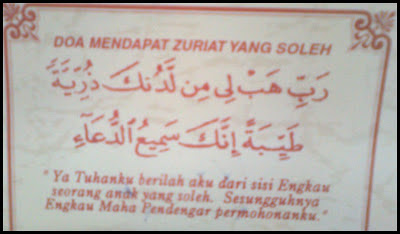 DOA MENDAPAT ZURIAT YANG SOLEH
رَبِّ هَبْ لِي مِن لَّدُنكَ ذُرِّيَّةً
طَيِّبَةً إِنَّكَ سَمِيعُ الدُّعَاءِ
" Ya Tuhanku berilah aku dari sisi Engkau
seorang anak yang soleh. Sesungguhnya
Engkau Maha Pendengar permohonanku."